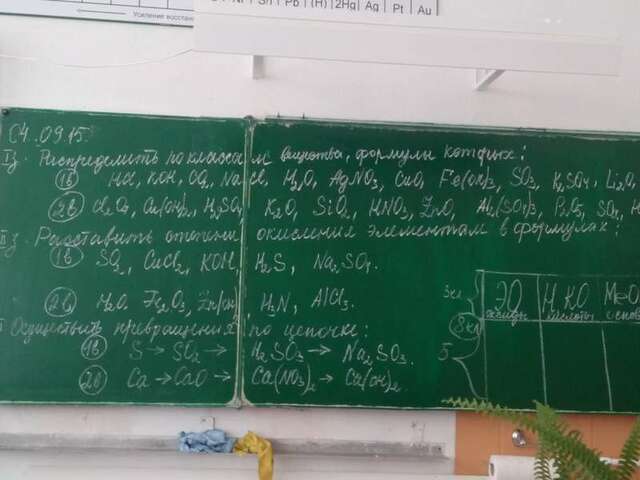 Усиление восстан
Ni Sn Pb (H) 2Hg Ag Pt Au
04.09.15.
I з. Распределить по классам вещества, формулы которых:
1в HCl, KOH, CO2, NaCl, H2O, AgNO3, CuO, Fe(OH)3, SO3, K2SO4, Li2O
2в Cl2O7, H2SO4, K2O, SiO2, HNO3, ZnO, Al2(SO4)3, P2O5,
II з. Расставить степени окисления элементам в формулах:
1в SO2, CuCl2, KOH, H2S, Na2SO4.
2в H2O, Fe2O3, H3N, AlCl3.
Осуществить превращения по цепочке:
1в S → SO2 → H2SO3 → Na2SO3.
2в Ca → CaO → Ca(NO3)2 → Ca(OH)2.
ЭО НnКО
оксиды кислоты